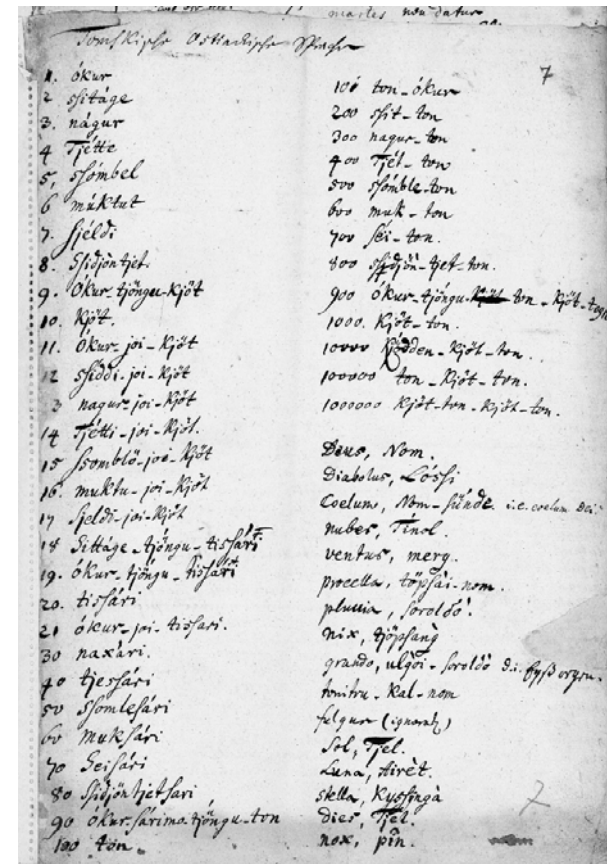 mactes non datur
7
Tomskische Ostiackische Sprache
1. ókur
2 sſitáge
3. nágur
4 Tjétte
5, sſómbel
6 múktut
7. ſjéldi
8. Sſidjöntjet.
9. Ókur-tjöngu-Kjöt
10. Kjöt.
11. Ókur-joi-Kjöt
12 sſiddi-joi-Kjöt
3 nagur-joi-Kjöt
14 Tjétti-joi-Kjöt.
15 sſomblö-joi-Kjöt
16. muktu-joi-Kjöt
17 ſjeldi-joi-Kjöt
18 Sittáge-tjöngu-tisſári
19. ókur-tjöngu-tisſári
20. tisſári
21 ókur-joi-tisſari.
30 naxári.
40 tjesſári
50 sſomleſári
60 mukſári
70 Seiſári
80 sſidjöntjetſari
90 ókur-ſárimo-tjöngu-ton
100 ton.
100 ton-ókur
200 sſit-ton
300 nagur-ton
400 Tjét-ton
500 sſómble-ton
600 muk-ton
700 ſéi-ton.
800 sſidjön-tjet-ton.
900 ókur-tjöngu-Kjöt-ton-Kjöt-
1000. Kjöt-ton.
10000 Kjödden-Kjöt-ton.
100000 ton-Kjöt-ton.
1000000 Kjöt-ton-Kjöt-ton.
Deus, Nom.
Diabolus, Lósſi
Coelum, Nom-ſúnde. i.e. coelum dei.
nubes, Tínol.
ventus, merg.
procella, töpſäi-nom.
pluvia, ſoroldó.
nix, tjöpſang
grando, ulgói-ſoroldó d.i.
tonitru. Kal-nom
fulgur (ignorat)
Sol, Tjel.
Luna, Airét.
stella, Kysſingà
dies, Tjel.
nox, pîn.
7